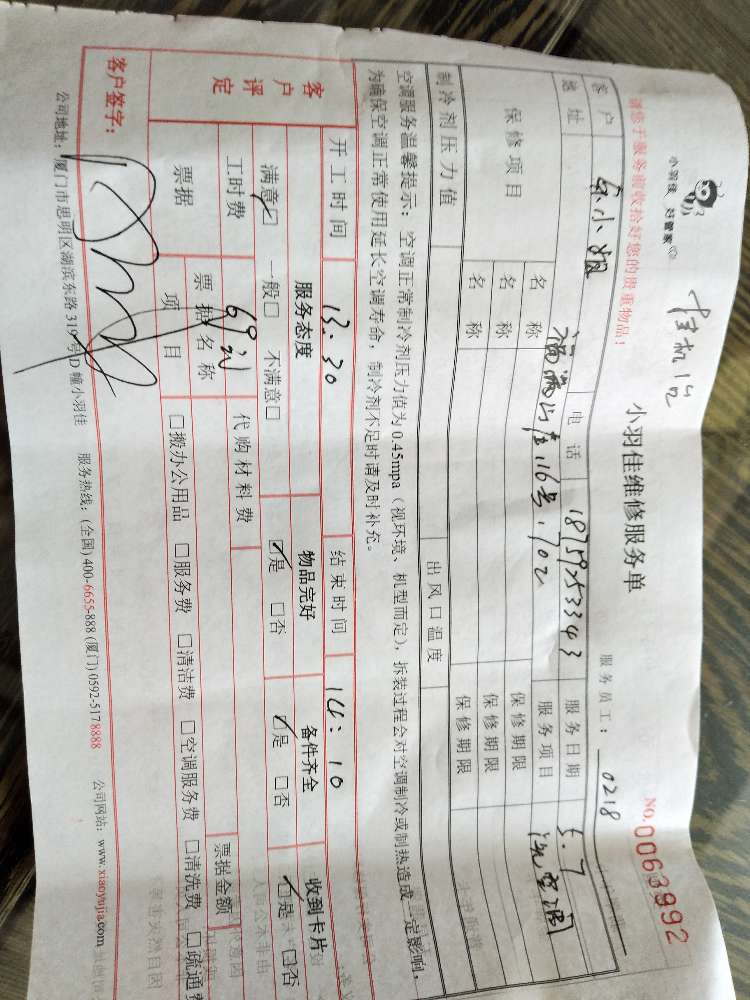 小羽佳 好管家
挂机1台
小羽佳维修服务单
NO.0063992
请您于服务前收拾好您的贵重物品!
服务员工: 0218
客户 小姐 电话 18759253343 服务日期 5.7
地址 116号 服务项目 洗空调
保修项目 名称 保修期限
名称 保修期限
名称 保修期限
制冷剂压力值 出风口温度
空调服务温馨提示: 空调正常制冷剂压力值为0.45mpa(视环境、机型而定), 拆装过程会对空调制冷或制热造成一定影响,
为确保空调正常使用延长空调寿命, 制冷剂不足时请及时补充。
开工时间 13:30 结束时间 14:10
客户评定 服务态度 物品完好 备件齐全 收到卡片
满意☑ 一般□ 不满意□ ☑是 □否 ☑是 □否 ☑是 □否
工时费 69元 代购材料费
票据 票据名称 票据金额
项目 □搬办公用品 □服务费 □清洁费 □空调服务费 □清洗费 □疏通费
客户签字:
公司地址: 厦门市思明区湖滨东路319号D幢小羽佳 服务热线: (全国) 400-6655-888 (厦门) 0592-5178888 公司网站: www.xiaoyujia.com